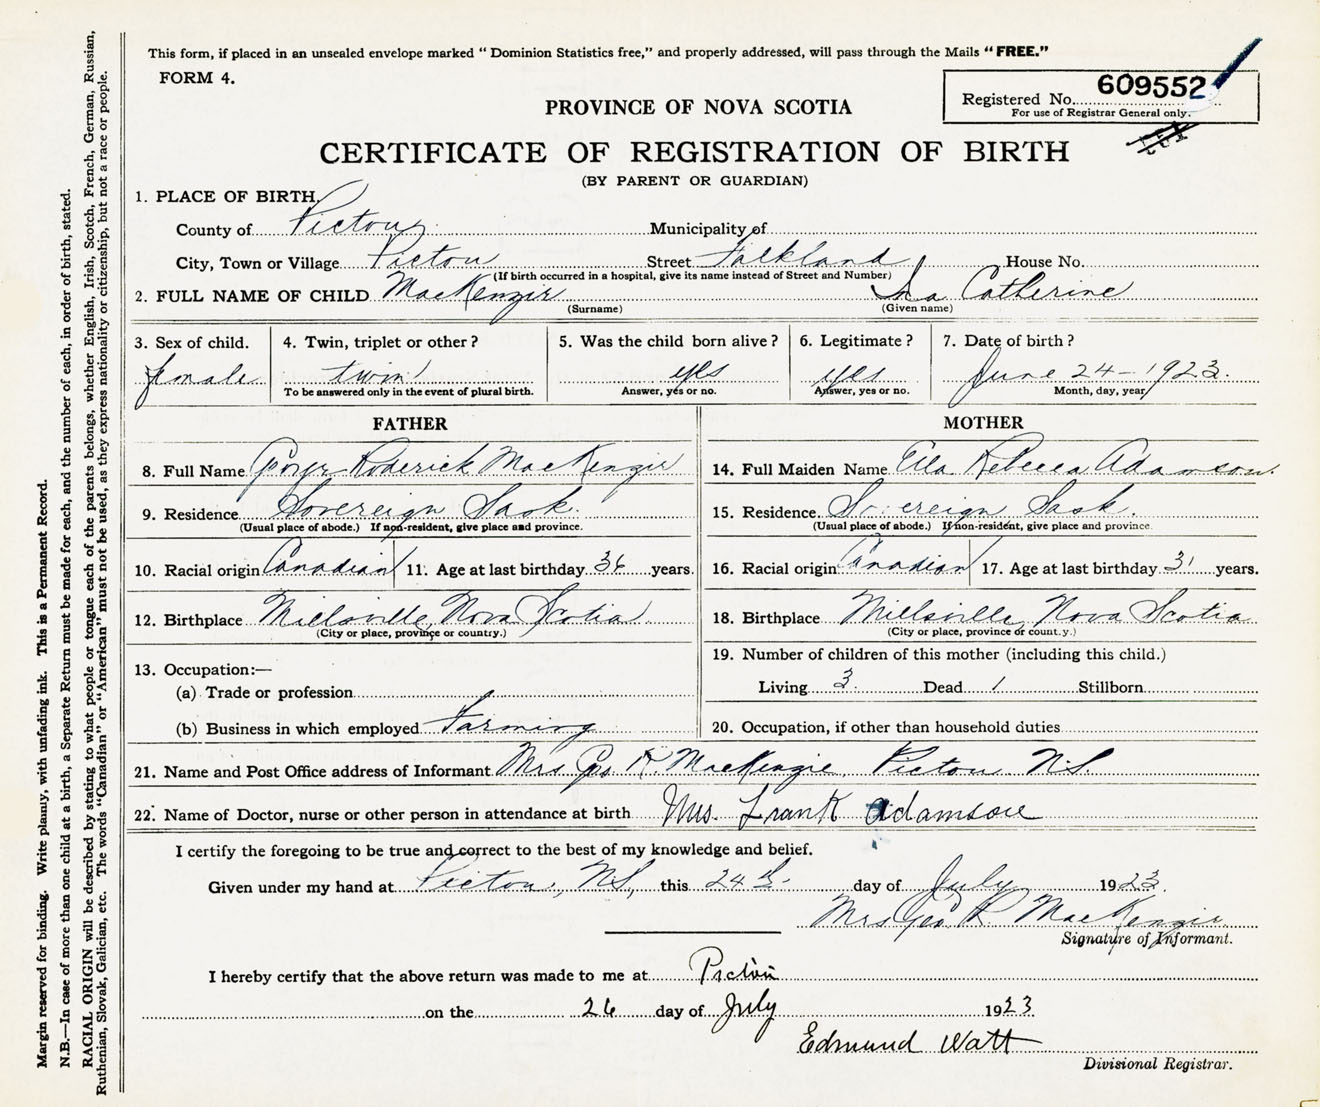 This form, if placed in an unsealed envelope marked “ Dominion Statistics free,” and properly addressed, will pass through the Mails “ FREE.”
FORM 4.
609552
Registered No.
For use of Registrar General only.
PROVINCE OF NOVA SCOTIA
CERTIFICATE OF REGISTRATION OF BIRTH
(BY PARENT OR GUARDIAN)
1. PLACE OF BIRTH.
County of Pictou Municipality of
City, Town or Village Pictou Street Falkland House No.
(If birth occurred in a hospital, give its name instead of Street and Number)
2. FULL NAME OF CHILD MacKenzie Ina Catherine
(Surname) (Given name)
3. Sex of child. 4. Twin, triplet or other? 5. Was the child born alive? 6. Legitimate? 7. Date of birth?
female twin yes yes June 24 - 1923.
To be answered only in the event of plural birth. Answer, yes or no. Answer, yes or no. Month, day, year
FATHER MOTHER
8. Full Name George Roderick MacKenzie 14. Full Maiden Name Ella Rebecca Adamson.
9. Residence Sovereign Sask. 15. Residence. Sovereign Sask.
(Usual place of abode.) If non-resident, give place and province. (Usual place of abode.) If non-resident, give place and province.
10. Racial origin Canadian 11. Age at last birthday 36 years. 16. Racial origin Canadian 17. Age at last birthday 31 years.
12. Birthplace Millsville, Nova Scotia 18. Birthplace Millsville, Nova Scotia
(City or place, province or country.) (City or place, province or country.)
13. Occupation:— 19. Number of children of this mother (including this child.)
(a) Trade or profession Living 3. Dead 1 Stillborn
(b) Business in which employed Farming 20. Occupation, if other than household duties
21. Name and Post Office address of Informant Mrs Geo R. MacKenzie, Pictou N.S.
22. Name of Doctor, nurse or other person in attendance at birth Mrs. Frank Adamson
I certify the foregoing to be true and correct to the best of my knowledge and belief.
Given under my hand at Pictou, N.S, this 24 day of July 1923.
Mrs Geo R. MacKenzie
Signature of Informant.
I hereby certify that the above return was made to me at Pictou
on the 26 day of July 1923
Edmund Watt
Divisional Registrar.
Margin reserved for binding. Write plainly, with unfading ink. This is a Permanent Record.
N.B.—In case of more than one child at a birth, a Separate Return must be made for each, and the number of each, in order of birth, stated.
RACIAL ORIGIN will be described by stating to what people or tongue each of the parents belongs, whether English, Irish, Scotch, French, German, Russian,
Ruthenian, Slovak, Galician, etc. The words “Canadian” or “American” must not be used, as they express nationality or citizenship, but not a race or people.